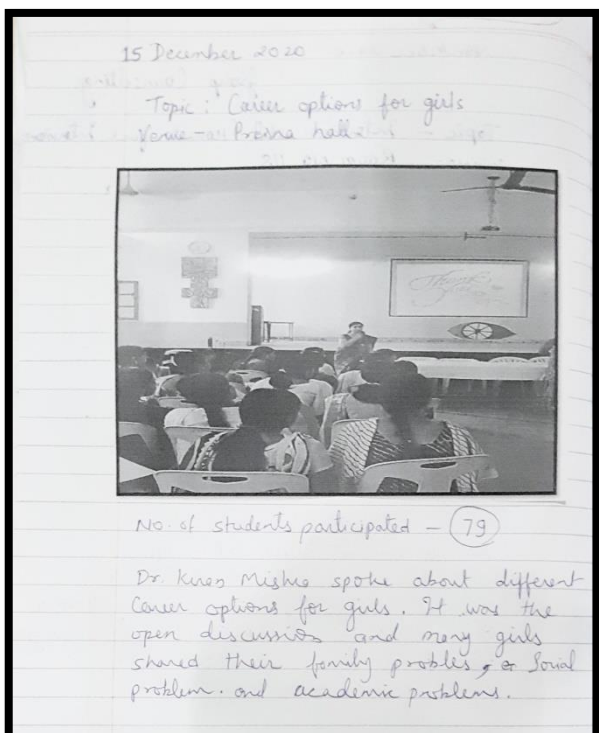 15 December 2020
Topic : Career options for girls
Venue - Prerna hall
Thank you
No. of students participated - 79
Dr. Kiren Mishra spoke about different
Career options for girls. It was the
open discussion and many girls
shared their family probles, or Social
problem. and academic problems.